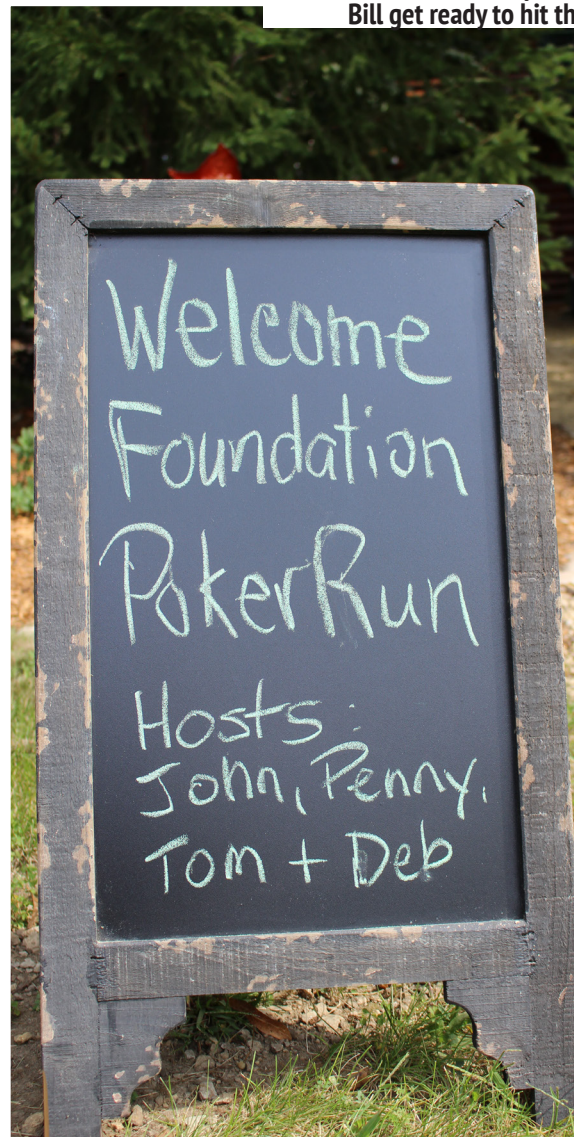 Bill get ready to hit th
Welcome
Foundation
Poker Run
Hosts:
John, Penny,
Tom + Deb